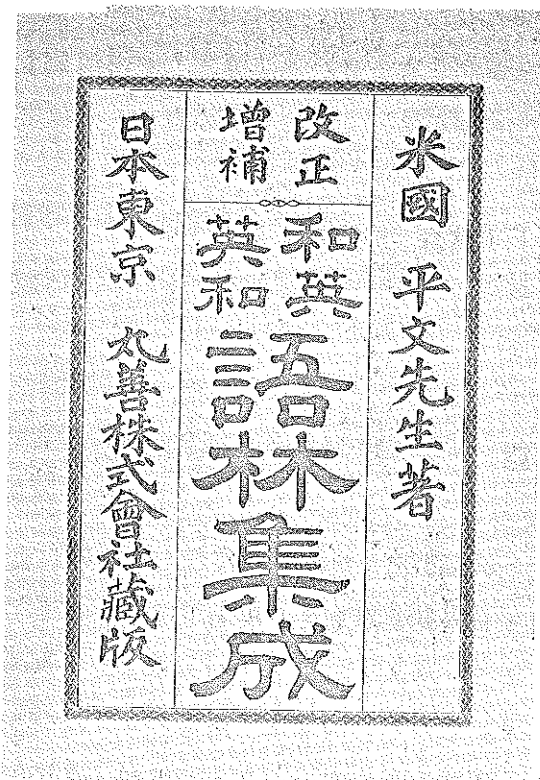 米國 平文先生著
改正
增補
和英
英和
語林集成
日本東京 丸善株式會社藏版